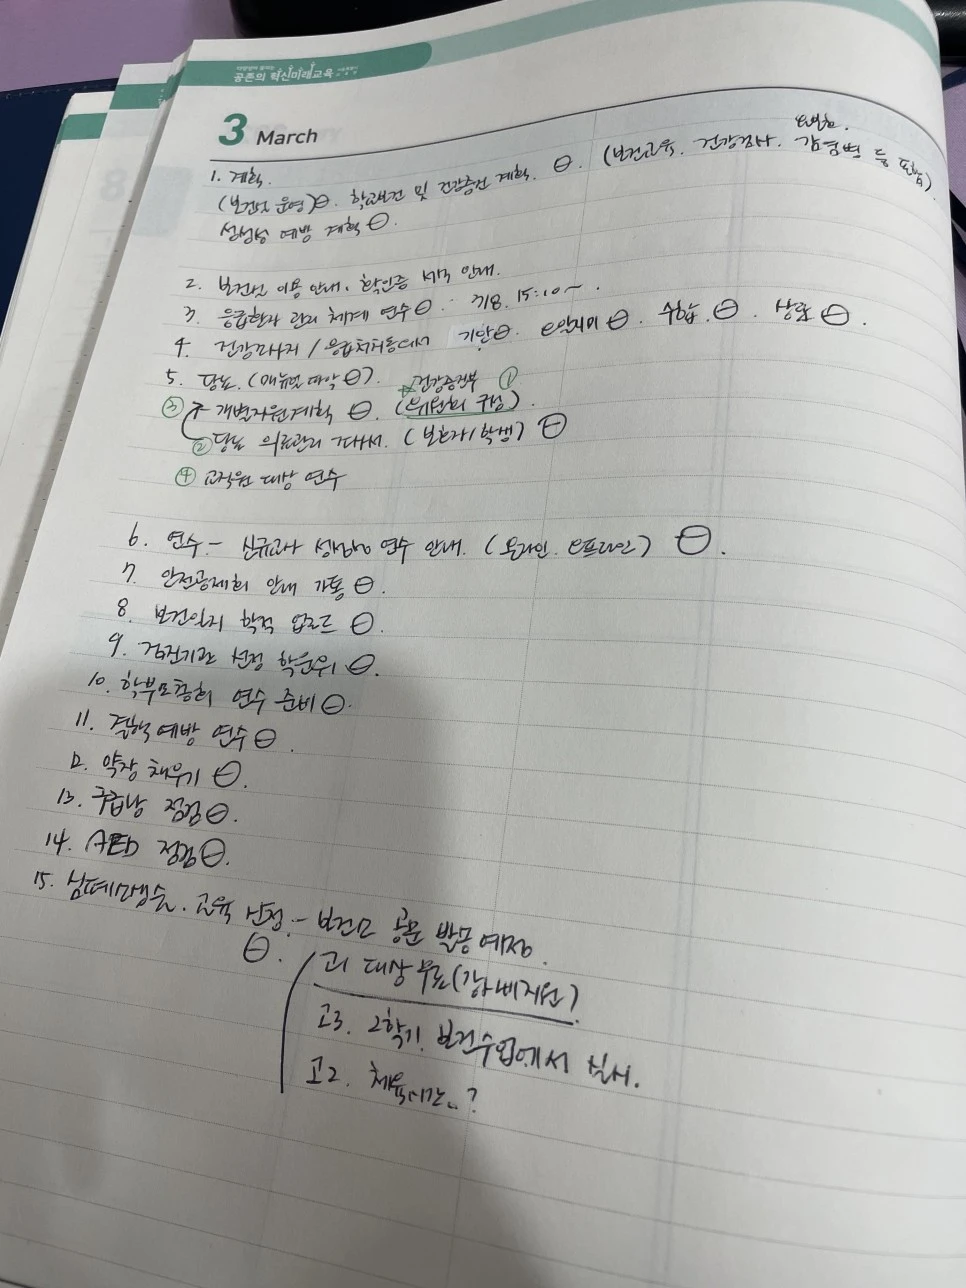 공존의 혁신미래교육
3 March
1. 계획.
(보건실 운영)⊖. 학교보건 및 건강증진 계획. ⊖. (보건교육. 건강검사. 감염병 등 포함)
성희롱 예방 계획 ⊖.
2. 보건실 이용 안내, 확인증 서식 안내.
3. 응급환자 관리 체계 연수 ⊖. 3/8. 15:10~.
4. 건강조사지 / 응급처치동의서 기안⊖. e알리미 ⊖. 수합.⊖. 상담 ⊖.
5. 당뇨. (매뉴얼 예약 ⊖). 건강증진부 ①
③ 개별지원계획 ⊖. (위원회 구성).
② 당뇨 의료관리 (보호자/학생) ⊖
④ 교직원 대상 연수
6. 연수 - 신규교사 연수 안내. (온라인. 오프라인) ⊖.
7. 안전공제회 안내 가통 ⊖.
8. 보건일지 학적 업로드 ⊖.
9. 검진기관 선정 학운위 ⊖.
10. 학부모총회 연수 준비 ⊖.
11. 결핵 예방 연수 ⊖.
12. 약장 채우기 ⊖.
13. 구급낭 점검 ⊖.
14. AED 점검 ⊖.
15. 심폐소생술. 교육 신청. - 공문 발송 예정.
⊖. 고1 대상 무료(강사비지원)
고3. 2학기 보건수업에서 실시.
고2. 체육시간..?